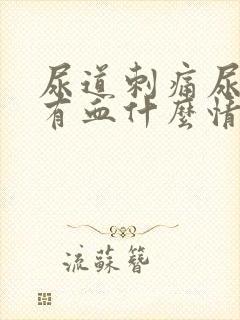 尿道刺痛尿
有血什麼情
流蘇簪